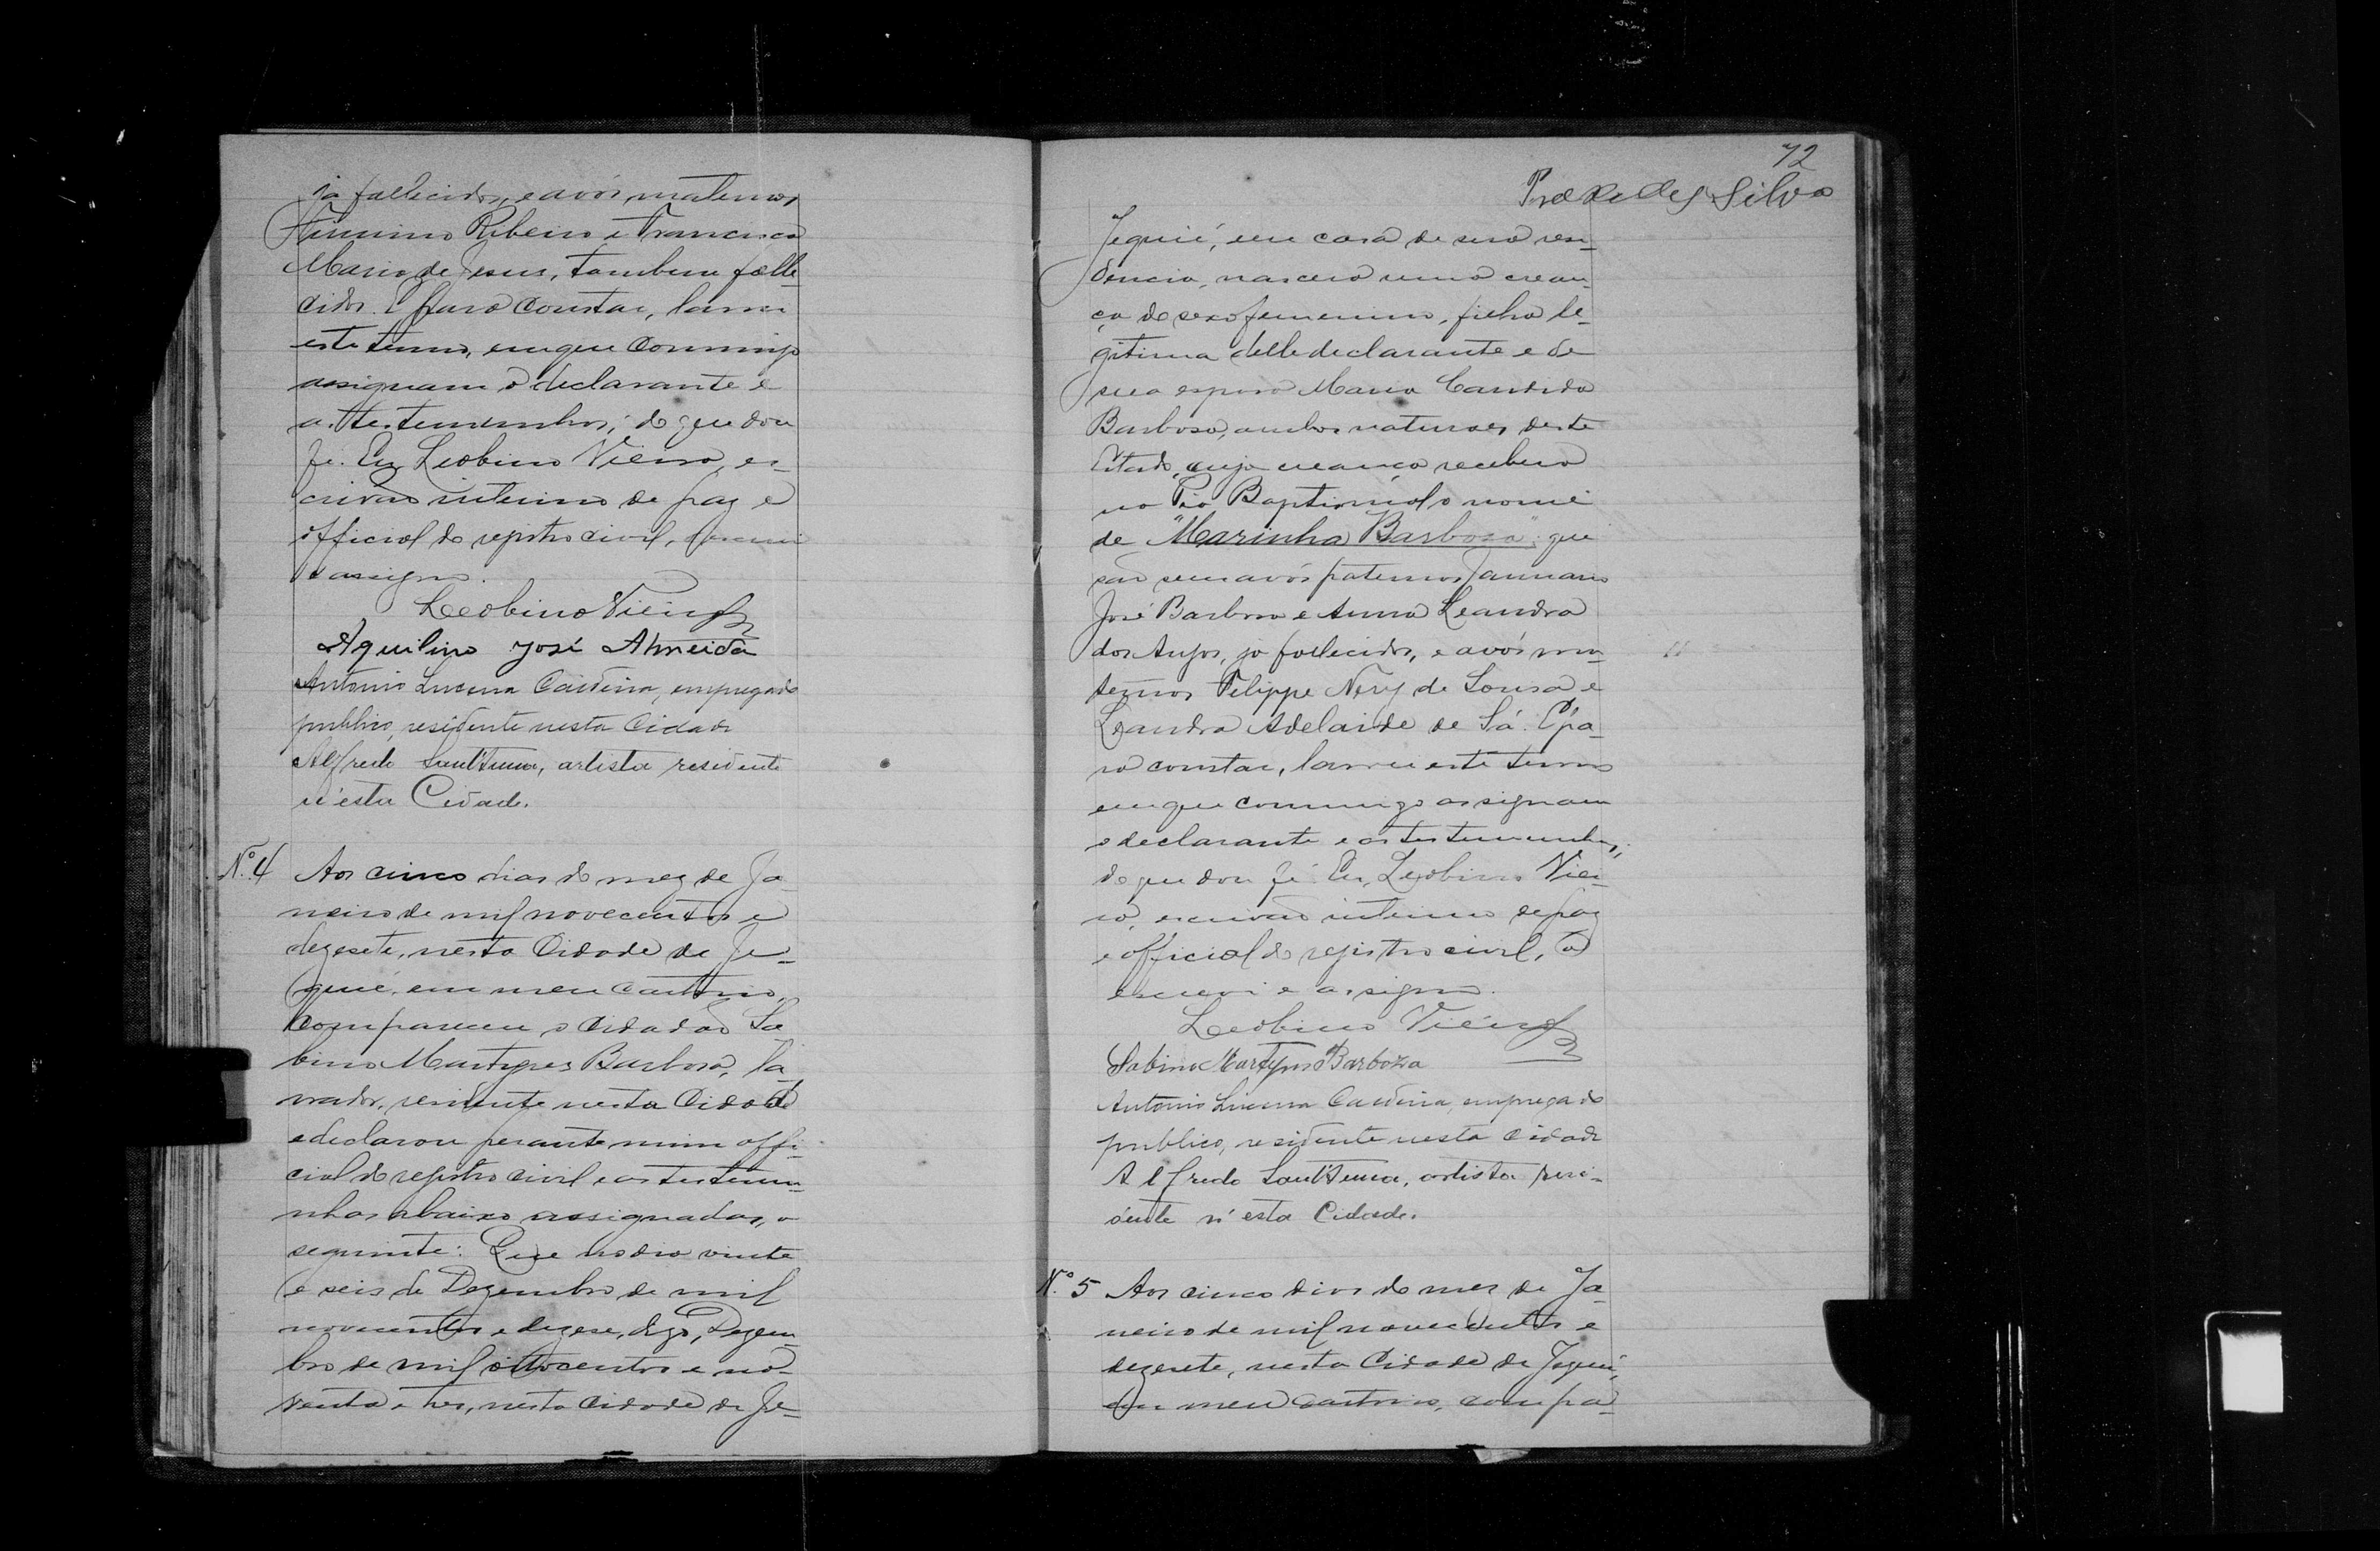 já fallecidos, e avós maternos
Firmino Ribeiro e Francisca
Maria de Jesus, tambem falle-
cidos. E para constar, lavrei
este termo, em que commigo
assignam o declarante e
as testemunhas; do que dou
fé. Eu Leobino Vieira, es-
crivão interino de paz e
official do registro civil, escrevi
e assigno.
Leobino Vieira
Aquilino José Almeida
Antonio Lucena Caldeira, empregado
publico, residente nesta Cidade
Alfredo Sant'Anna, artista residente
n'esta Cidade.
Nº. 4 Aos cinco dias do mez de Ja-
neiro de mil novecentos e
dezesete, nesta Cidade de Je-
quié, em meu cartorio,
compareceu o cidadão Sa-
bino Martyres Barbosa, la-
vrador, residente nesta Cidade
e declarou perante mim offi-
cial do registro civil e as testemu-
nhas abaixo assignadas, o
seguinte: Que no dia vinte
e seis de Dezembro de mil
novecentos e dezese, digo, Dezem-
bro de mil oitocentos e no-
venta e tres, nesta Cidade de Je-
72
Praxedes Silva
Jequié, em casa de sua resi-
dencia, nascera uma crean-
ça do sexo femenino, filha le-
gitima delle declarante e de
sua esposa Maria Candida
Barbosa, ambos naturaes deste
Estado, cuja creança recebera
na Pia Baptismal o nome
de "Marinha Barbosa", que
são seus avós paternos Januario
José Barbosa e Anna Leandra
dos Anjos, já fallecidos, e avós ma-
ternos Felippe Nery de Sousa e
Leandra Adelaide de Sá. E pa-
ra constar, lavrei este termo
em que commigo assignam
o declarante e as testemunhas;
do que dou fé. Eu, Leobino Viei-
ra, escrivão interino de paz
e official do registro civil, o
escrevi e assigno.
Leobino Vieira
Sabino Martyres Barboza
Antonio Lucena Caldeira, empregado
publico, residente nesta Cidade
Alfredo Sant'Anna, artista resi-
dente n'esta Cidade.
Nº. 5 Aos cinco dias do mez de Ja-
neiro de mil novecentos e
dezesete, nesta Cidade de Jequié,
em meu cartorio, compa-